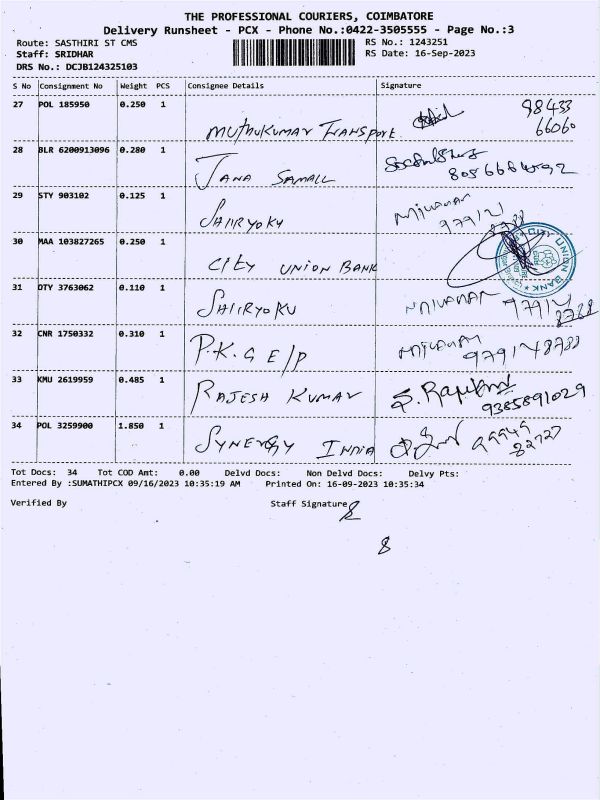 THE PROFESSIONAL COURIERS, COIMBATORE
Delivery Runsheet - PCX - Phone No.:0422-3505555 - Page No.:3
Route: SASTHIRI ST CMS RS No.: 1243251
Staff: SRIDHAR RS Date: 16-Sep-2023
DRS No.: DCJB124325103
S No Consignment No Weight PCS Consignee Details Signature
27 POL 185950 0.250 1 MUTHUKUMAR TRANSPORT 98433
66060
28 BLR 6200913096 0.280 1 JANA SAMALL
29 STY 903102 0.125 1 SHIRYOKU
30 MAA 103827265 0.250 1 CITY UNION BANK CITY UNION BANK
31 DTY 3763062 0.110 1 SHIRYOKU
32 CNR 1750332 0.310 1 P.K.G E/P 979148788
33 KMU 2619959 0.485 1 RAJESH KUMAR 9385891029
34 POL 3259900 1.850 1 SYNERGY INDIA 82727
Tot Docs: 34 Tot COD Amt: 0.00 Delvd Docs: Non Delvd Docs: Delvy Pts:
Entered By :SUMATHIPCX 09/16/2023 10:35:19 AM Printed On: 16-09-2023 10:35:34
Verified By Staff Signature